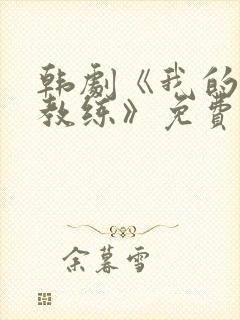 韩剧《我的
教练》免费
余暮雪